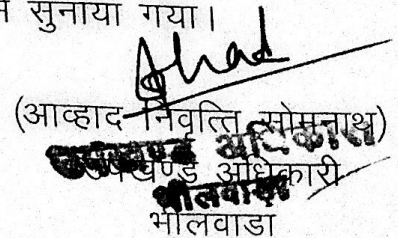 सुनाया गया।
(आव्हाद निवृत्ति सोमनाथ)
उपखण्ड अधिकारी
उपखण्ड अधिकारी
भीलवाड़ा
भीलवाडा